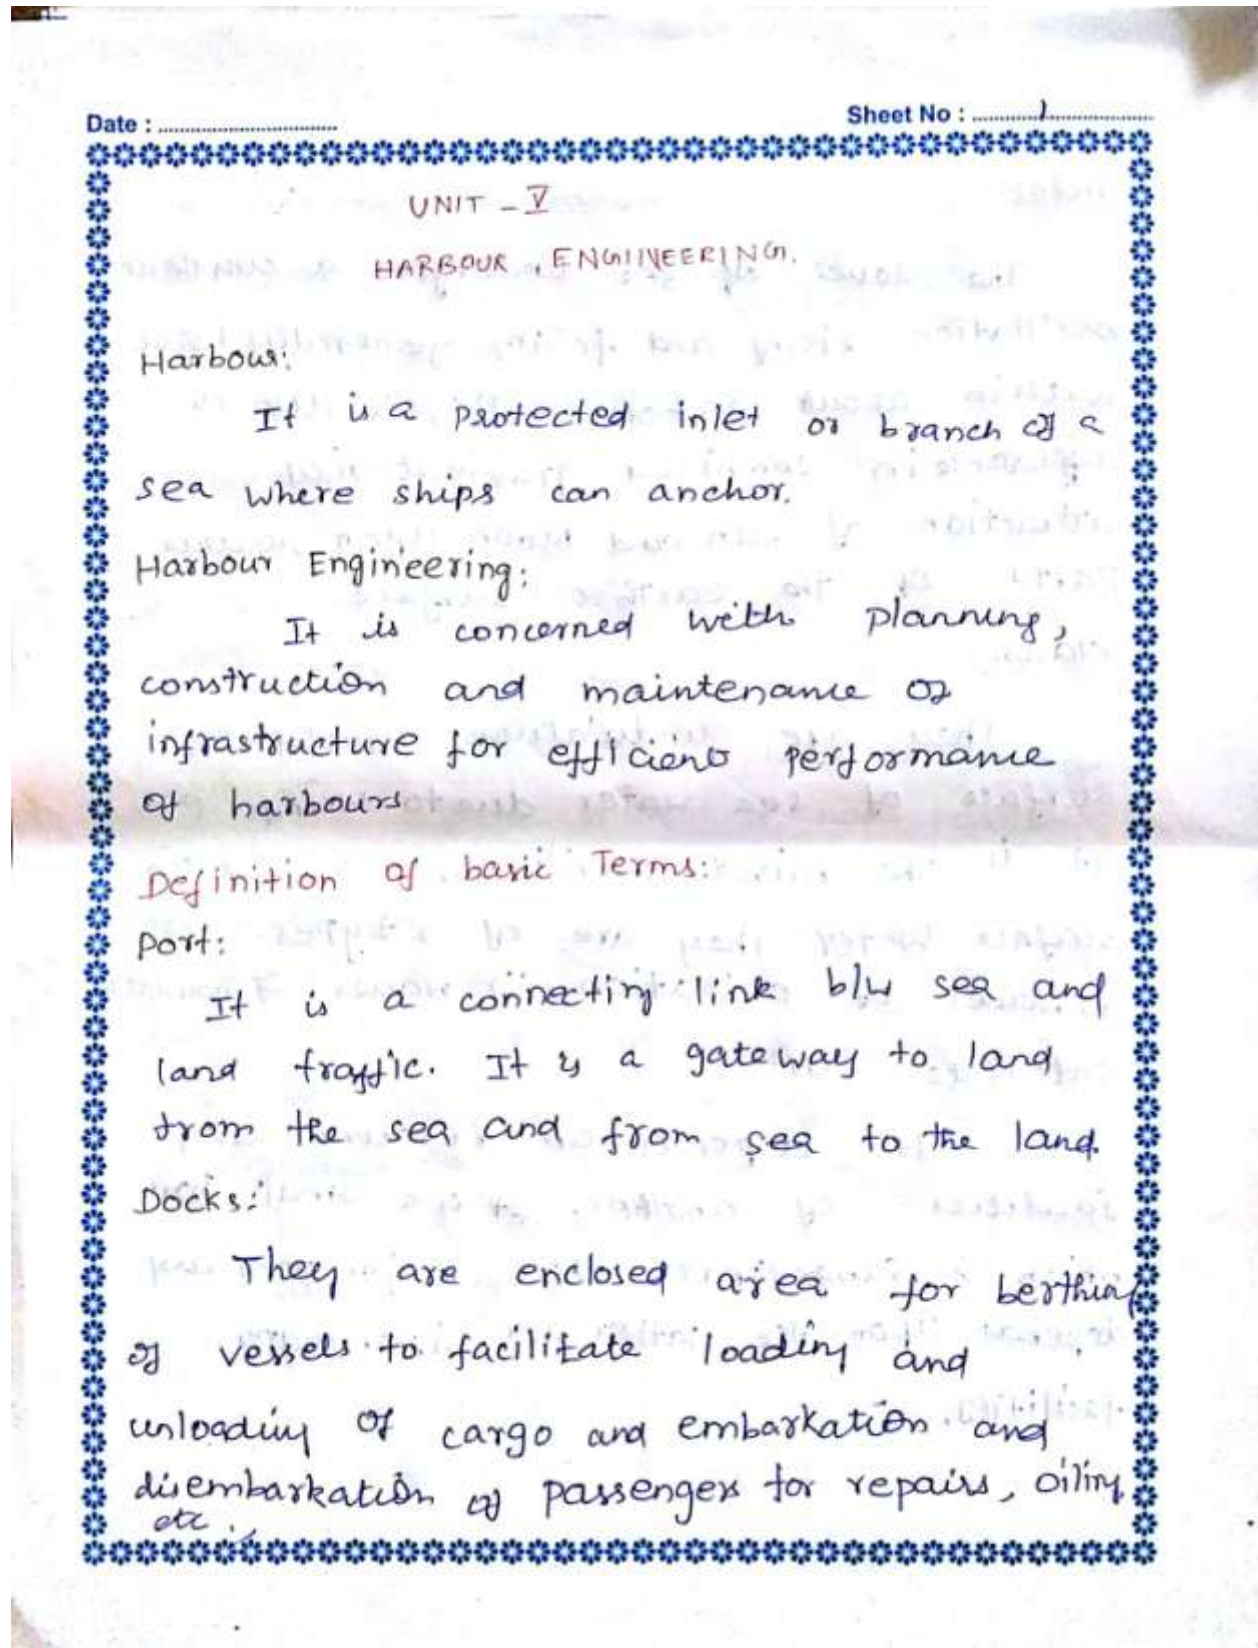 Date : ..............................
Sheet No : ............1..................
UNIT - V
HARBOUR ENGINEERING.
Harbour:
It is a protected inlet or branch of a
sea where ships can anchor.
Harbour Engineering:
It is concerned with planning,
construction and maintenance of
infrastructure for efficient performance
of harbours
Definition of basic Terms:
Port:
It is a connecting link b/w sea and
land traffic. It is a gateway to land
from the sea and from sea to the land.
Docks:
They are enclosed area for berthing
of vessels to facilitate loading and
unloading of cargo and embarkation and
disembarkation of passengers for repairs, oiling
etc.